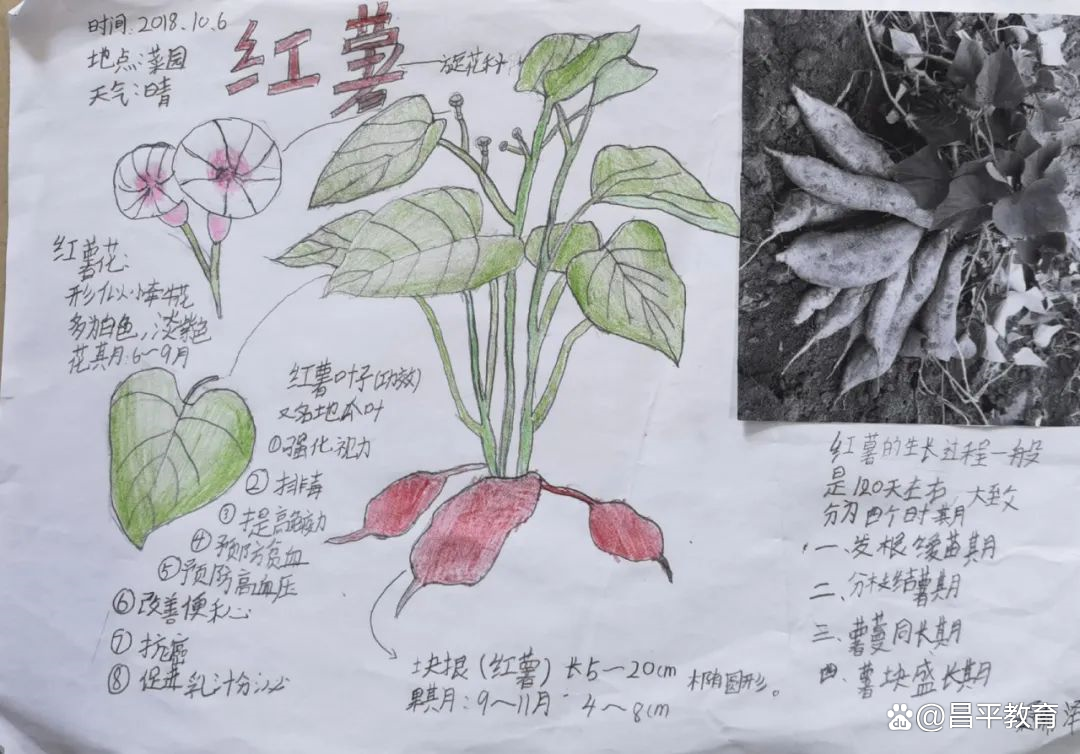 时间:2018.10.6
地点:菜园
天气:晴
红薯
旋花科
红薯花:
形似小牵牛花
多为白色,淡紫色
花期:6~9月
红薯叶子(功效)
又名地瓜叶
①强化视力
②排毒
③提高免疫力
④预防贫血
⑤预防高血压
⑥改善便秘
⑦抗癌
⑧促进乳汁分泌
块根(红薯)长5~20cm
果期:9~11月 4~8cm
椭圆形。
红薯的生长过程一般
是120天左右,大致
分为四个时期
一、发根缓苗期
二、分枝结薯期
三、薯蔓同长期
四、薯块盛长期
Baidu百度@昌平教育